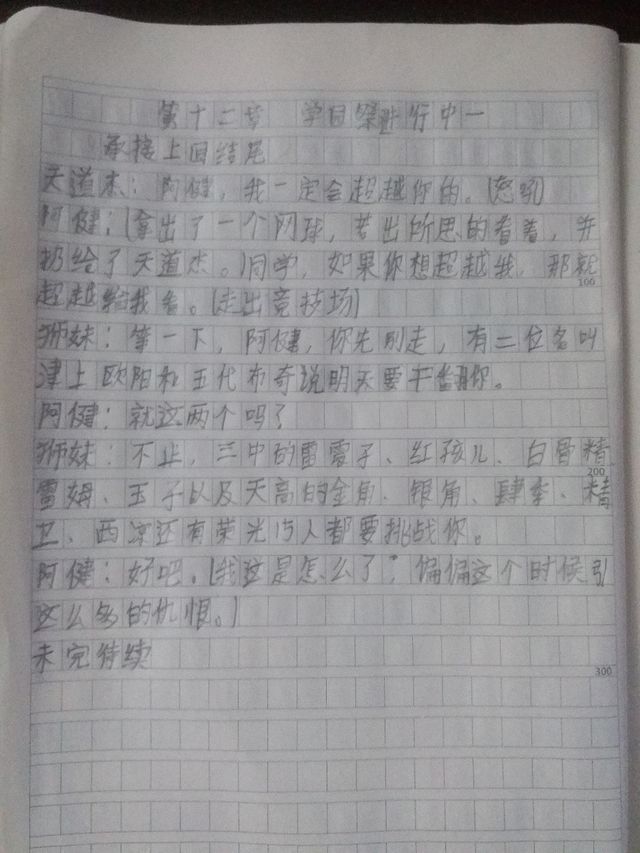 第十二章 学园祭进行中一
承接上回结尾
天道杰：阿健，我一定会超越你的。(怒吼)
阿健：(拿出了一个网球，若出所思的看着，并
扔给了天道杰。)同学，如果你想超越我，那就
100
超越给我看。(走出竞技场)
狮妹：等一下，阿健，你先别走，有二位名叫
津上欧阳和五代布奇说明天要干翻你。
阿健：就这两个吗？
狮妹：不止，三中的雷震子、红孩儿、白骨精
200
雷姆、玉子以及天高的金角、银角、肆季、精
卫、西凉还有荣光15人都要挑战你。
阿健：好吧。(我这是怎么了？偏偏这个时候引
这么多的仇恨。)
未完待续
300